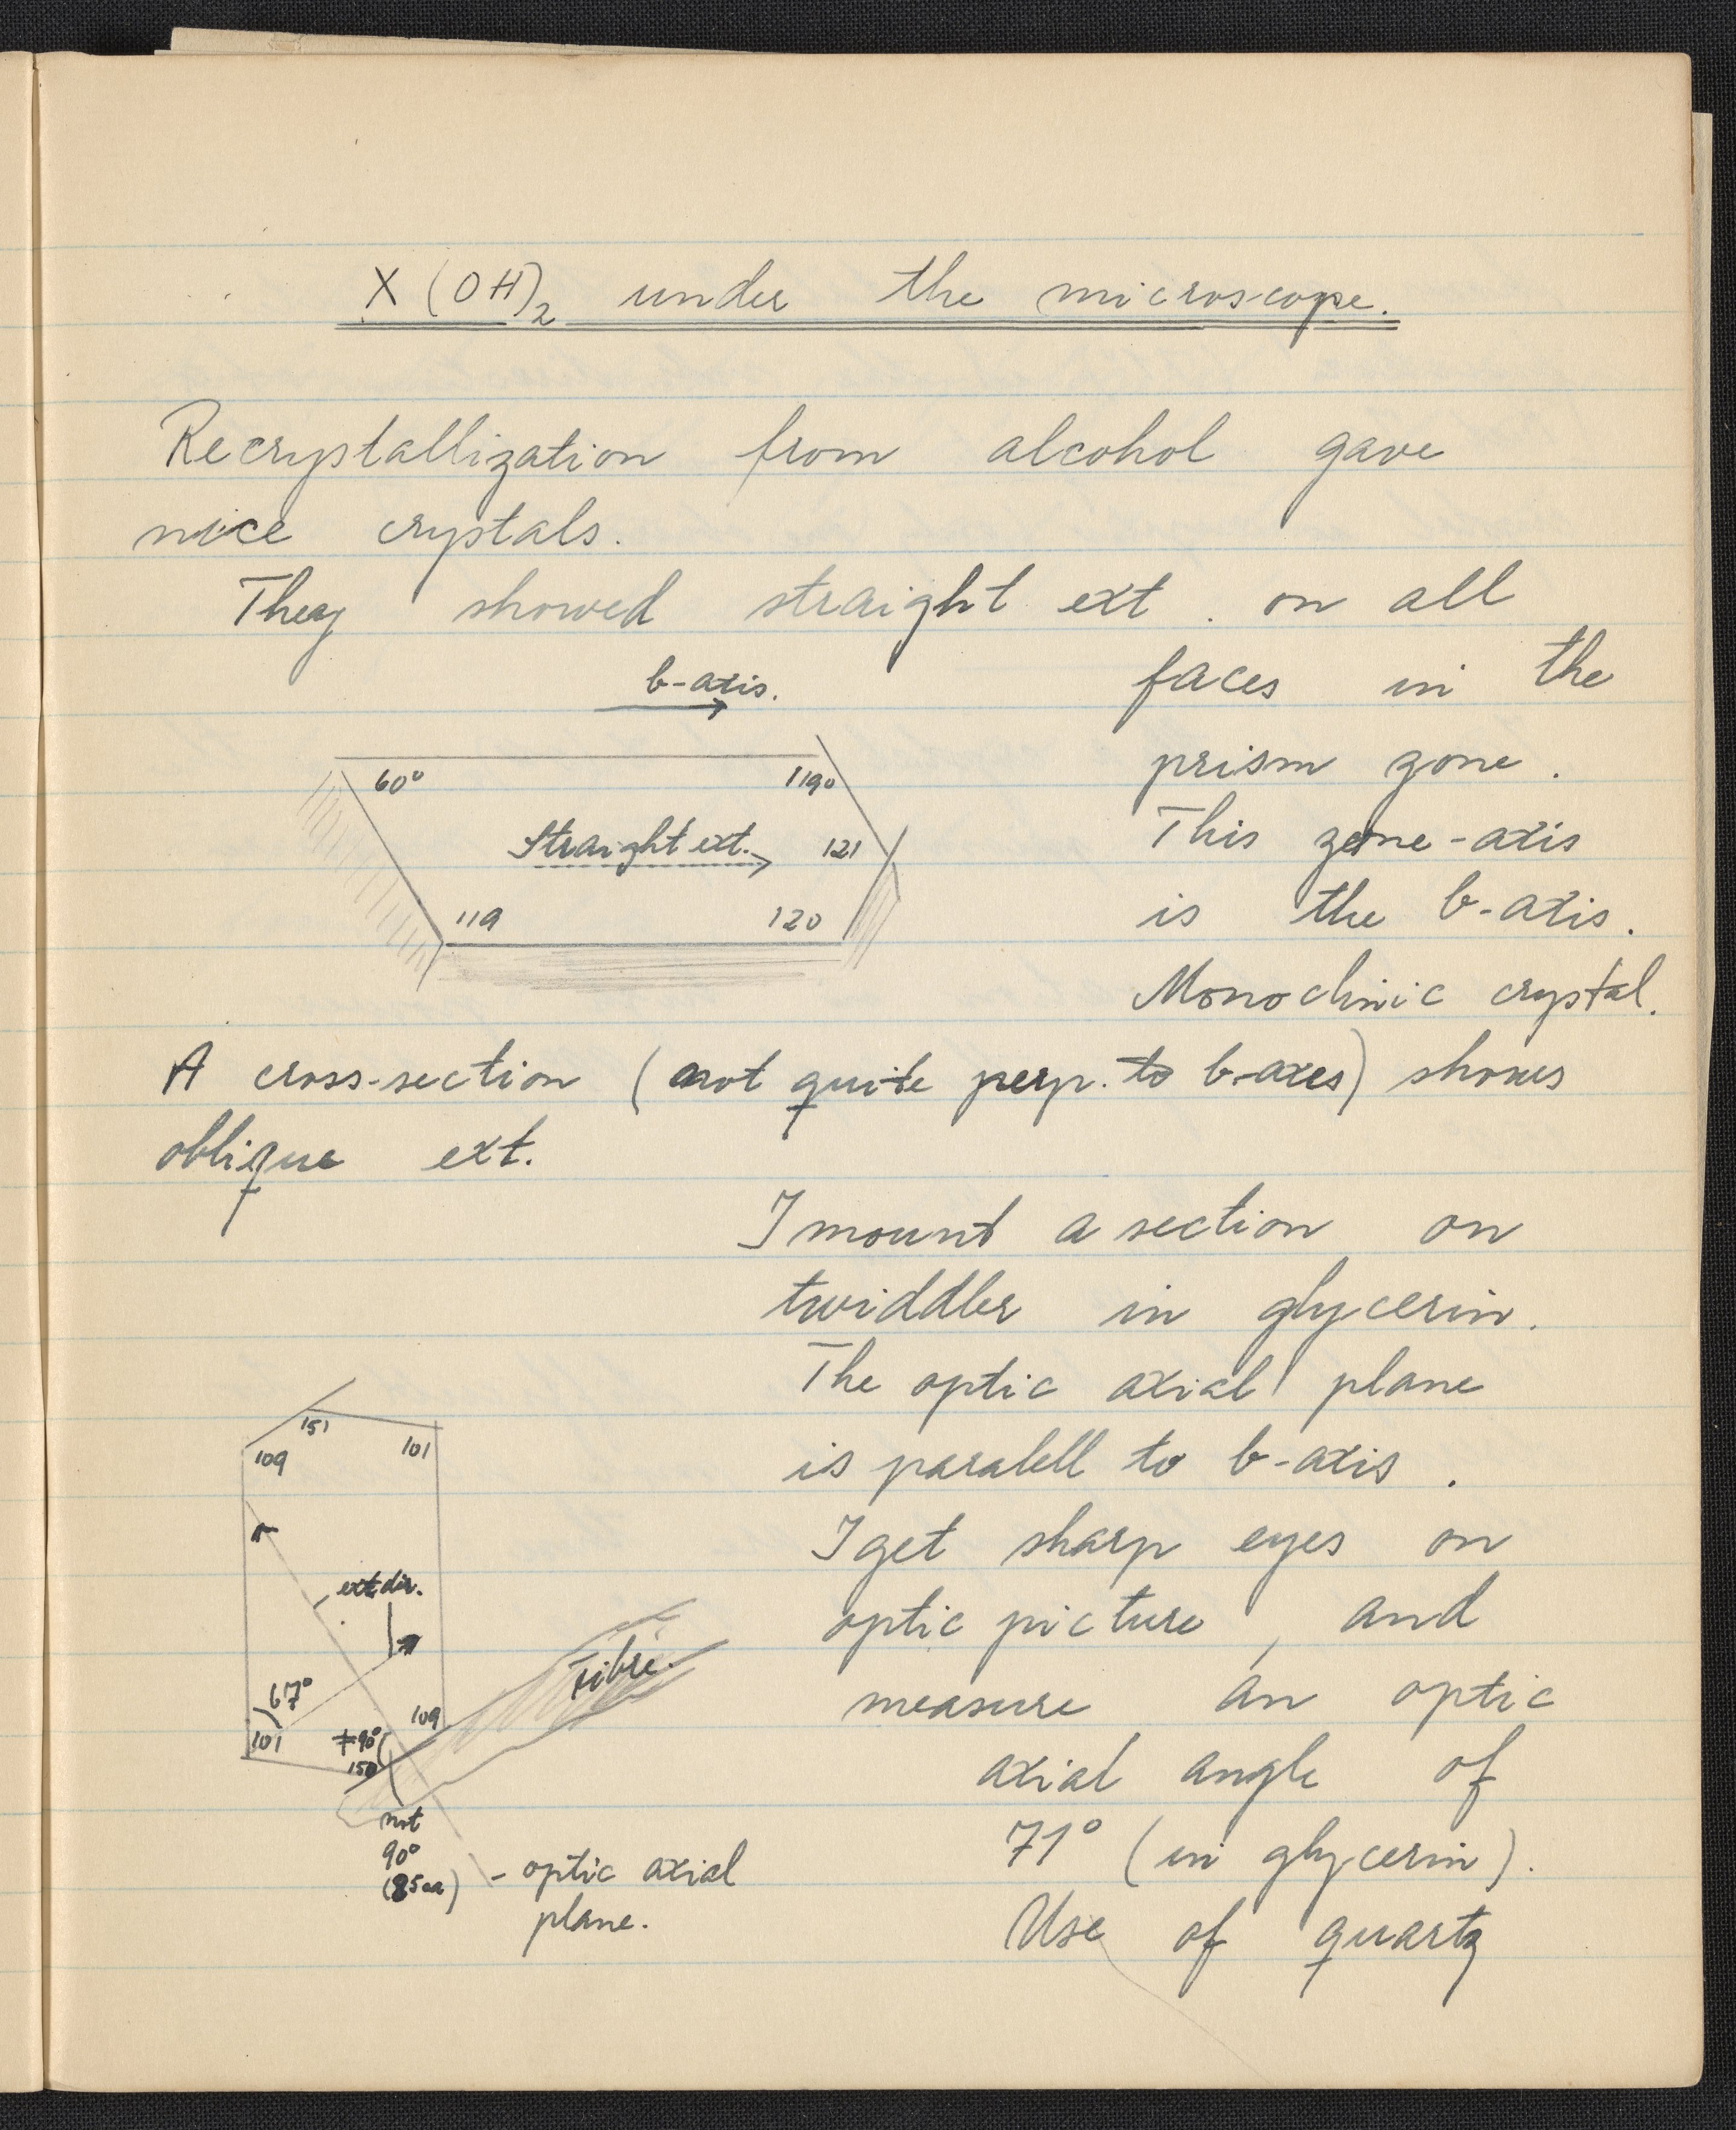 X (OH)2 under the microscope.
Recrystallization from alcohol gave
nice crystals.
They showed straight ext. on all
faces in the
prism zone.
This zone-axis
is the b-axis.
Monoclinic crystal.
b-axis.
60° 119°
Straight ext. 121
119 120
A cross-section (not quite perp. to b-axes) shows
oblique ext.
I mount a section on
twiddler in glycerin.
The optic axial plane
is paralell to b-axis.
I get sharp eyes on
optic picture, and
measure an optic
axial angle of
71° (in glycerin).
Use of quartz
151
109 101
ext dir.
Fibre.
67°
109
101 ≠90°
150
not
90°
(85ca)
- optic axial
plane.